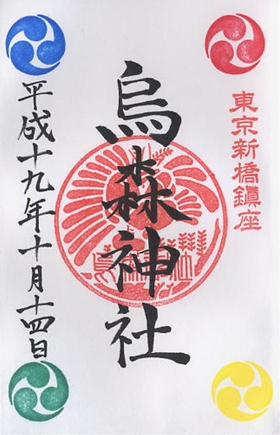 東京新橋鎮座
烏森神社
平成十九年十月十四日